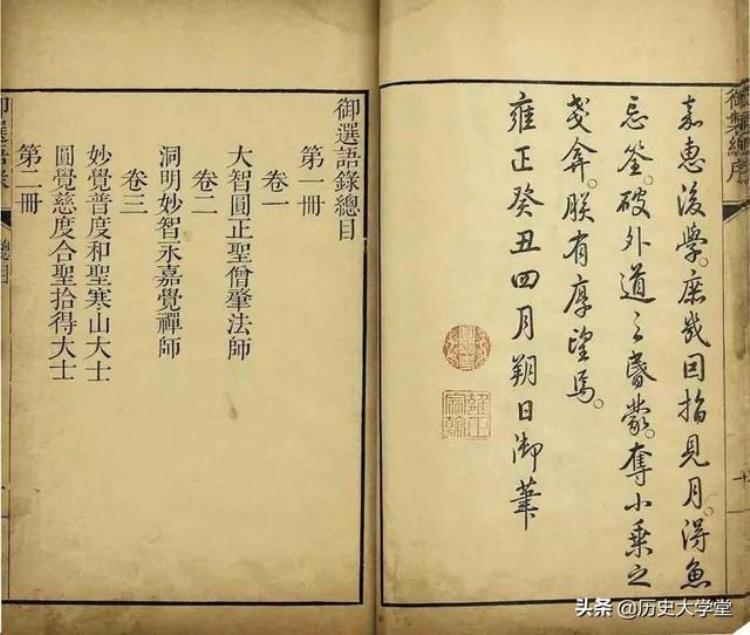 御製總序
嘉惠後學。庶幾因指見月。得魚
忘筌。破外道之昏蒙。奪小乘之
戔弇。朕有厚望焉。
雍正癸丑四月朔日御筆
雍正宸翰
御選語錄總目
第一冊
卷一
大智圓正聖僧肇法師
卷二
洞明妙智永嘉覺禪師
卷三
妙覺普度和聖寒山大士
圓覺慈度合聖拾得大士
第二冊
御選語錄
總目
头条 @历史大学堂